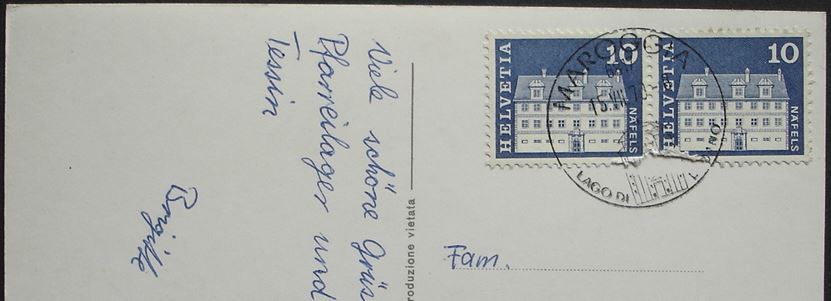 Viele schöne Grüs
Pfarreilager und
Tessin
Brigitte
roduzione vietata
HELVETIA
10
NÄFELS
HELVETIA
10
NÄFELS
MAROGGIA
LAGO DI
Fam.